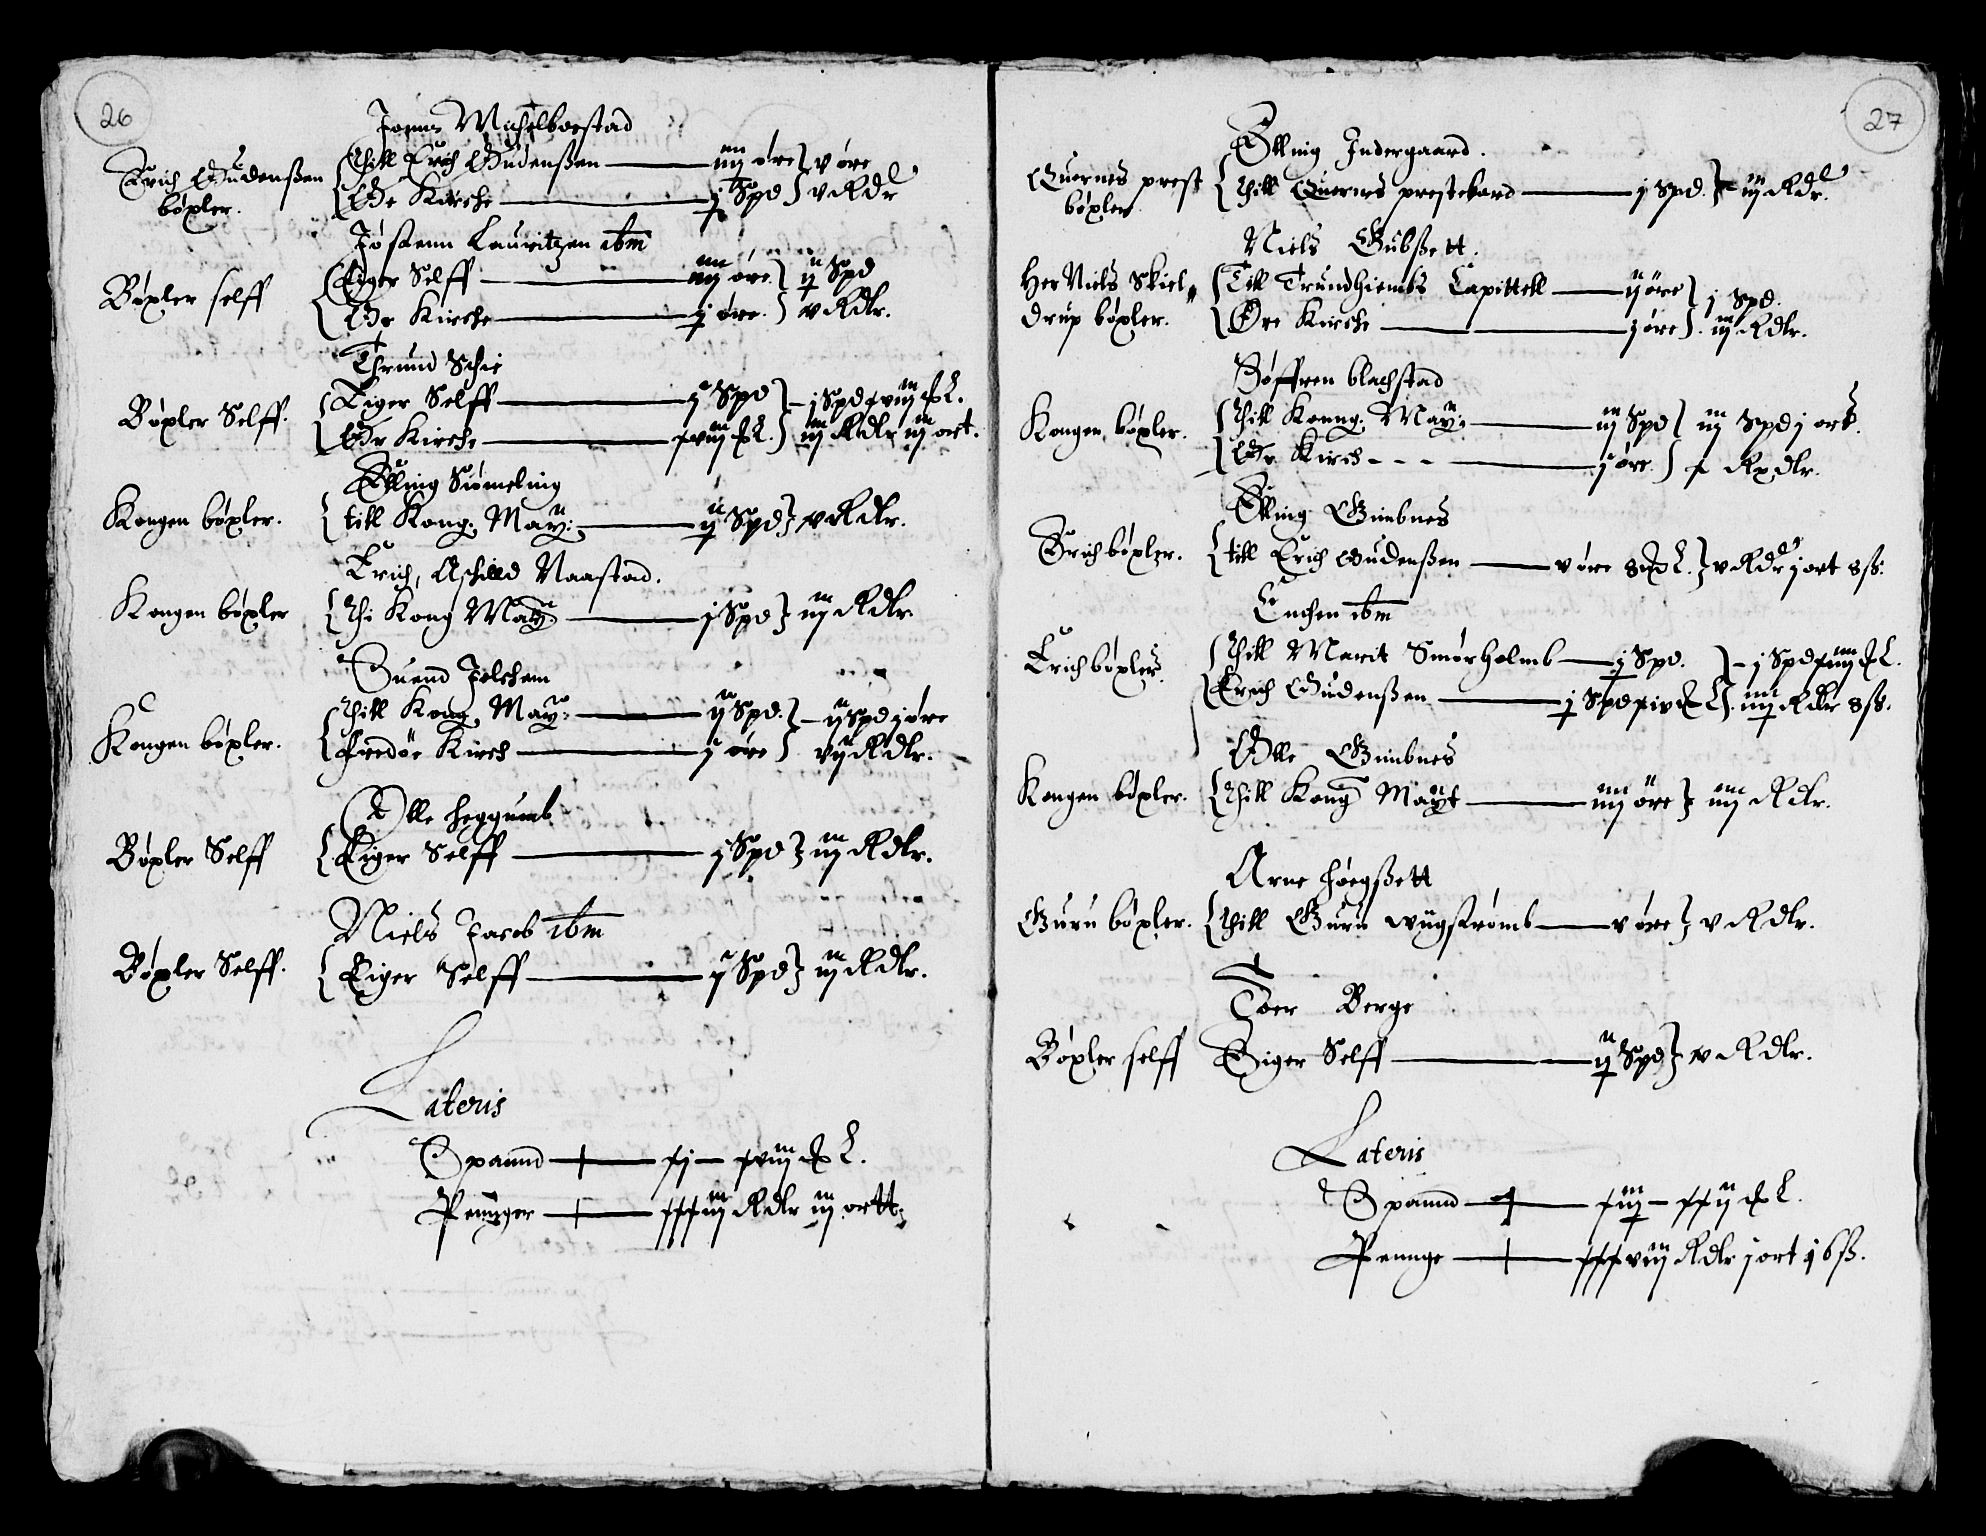 26
Jonns Michelboestad
Erich Gudenßen
bøxler.
Thill Erich Gudenßen — iiij øre } v øre
Øre Kirche — j Spd } v Rdr
Jøstenn Lauritzen ibm
Bøxler selff
Eiger Selff — iiij øre } ij Spd
Øre Kirche — j øre } v Rdlr.
Thrund Schei
Bøxler Selff.
Eiger Selff — j Spd } j Spd xviij £.
Øre Kirche — xviij £ } iiij Rdlr iij ort.
Elling Siømeling
Kongen bøxler.
till Kong. May: — ij Spd } v Rdlr.
Erich, Aschild Naastad.
Kongen bøxler
Thi Kong May — j Spd } iij Rdlr
Suend Jelshem
Kongen bøxler.
Thill Kong. May: — ij Spd. } ij Spd j øre
Fredøe Kirch — j øre } vij Rdlr.
Olle heggumb
Bøxler Selff
Eiger Selff — j Spd } iij Rdlr.
Niels Jacob ibm
Bøxler Selff.
Eiger Selff — j Spd } iij Rdlr.
Lateris
Spannd — xj — xviij £.
Pennger — xxxiij Rdlr iij ortt.
27
Elling Indergaard.
Quernes prest
bøxler
Thill Quernes prestebord — j Spd. } iij Rdr.
Niels Gubßett.
Her Niels Skiel„
drup bøxler.
Till Trundhiembs Capittell — ij øre } j Spd.
Øre Kirche — j øre } iij Rdlr.
Søffren blachstad
Kongen bøxler.
Thill Konng. May: — iij Spd } iij Spd j ort.
Øre Kirch - - - — j øre } x Rxdlr.
Elling Gimbnes
Erich bøxler.
till Erich Gudenßen — v øre 8 £. } v Rdr j ort 8 ß.
Enchen ibm
Erich bøxler.
Thill Marit Smørholmb — j Spd. } j Spd xiiij £.
Erich Gudenßen — j Spd xiv £ } iiij Rdlr 8 ß.
Olle Gimbnes
Kongen bøxler.
Thill Kong Mayt — iiij øre } iiij Rdlr.
Arne høegßett
Guru bøxler.
Thill Guru wiigstrømb — v øre } v Rdlr.
Toer Berge
Bøxler selff
Eiger Selff — ij Spd } v Rdlr.
Lateris
Spannd — xiij — xxij £.
Pennge — xxxviij Rdlr j ort 16 ß.